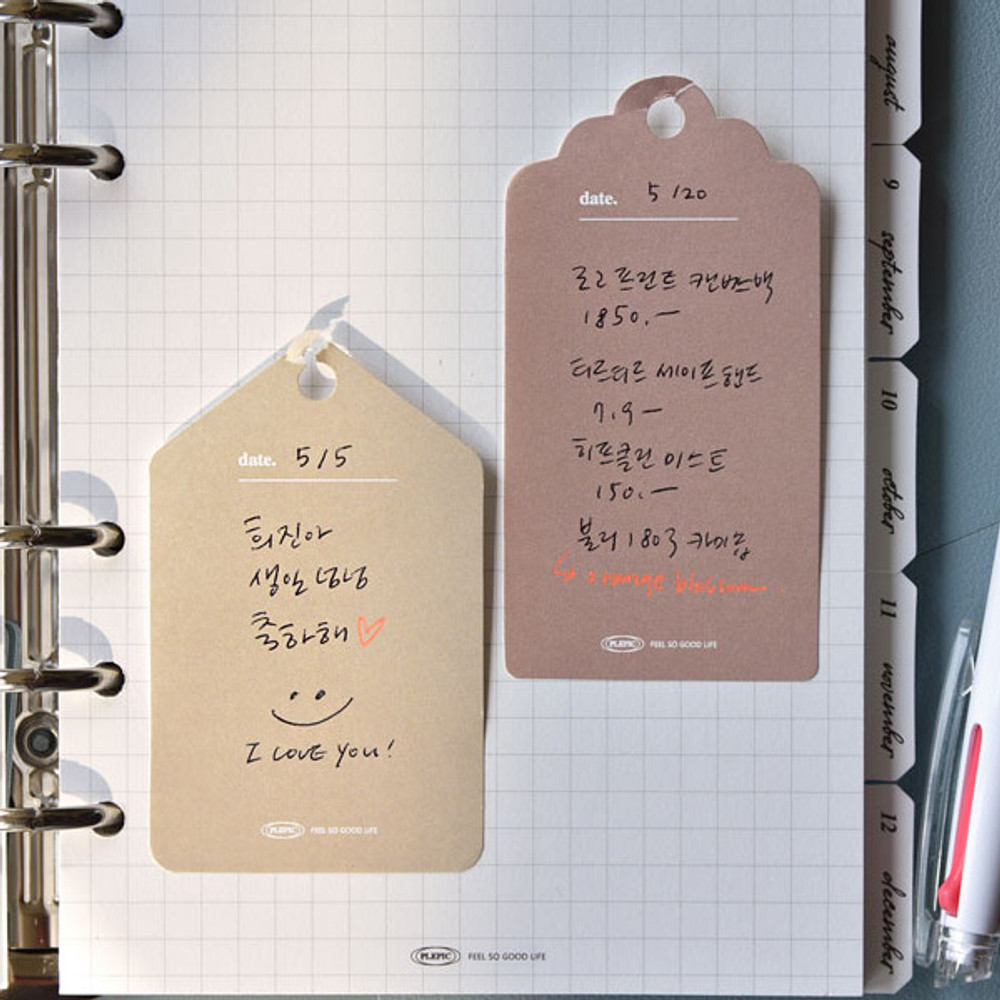 date. 5/5
희진아
생일 넘넘
축하해
I LOVE YOU!
PLEPIC FEEL SO GOOD LIFE
date. 5/20
로고 프린트 캔버스백
1850.—
티르티르 세이프핸드
7.9—
히프클린 미스트
150.—
불리 1803
↳ orange blossom.
PLEPIC FEEL SO GOOD LIFE
PLEPIC FEEL SO GOOD LIFE
august
9 september
10 october
11 november
12 december